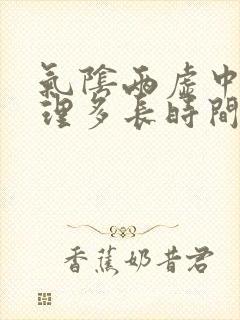 氣陰兩虛中
理多長時間
香蕉奶昔君